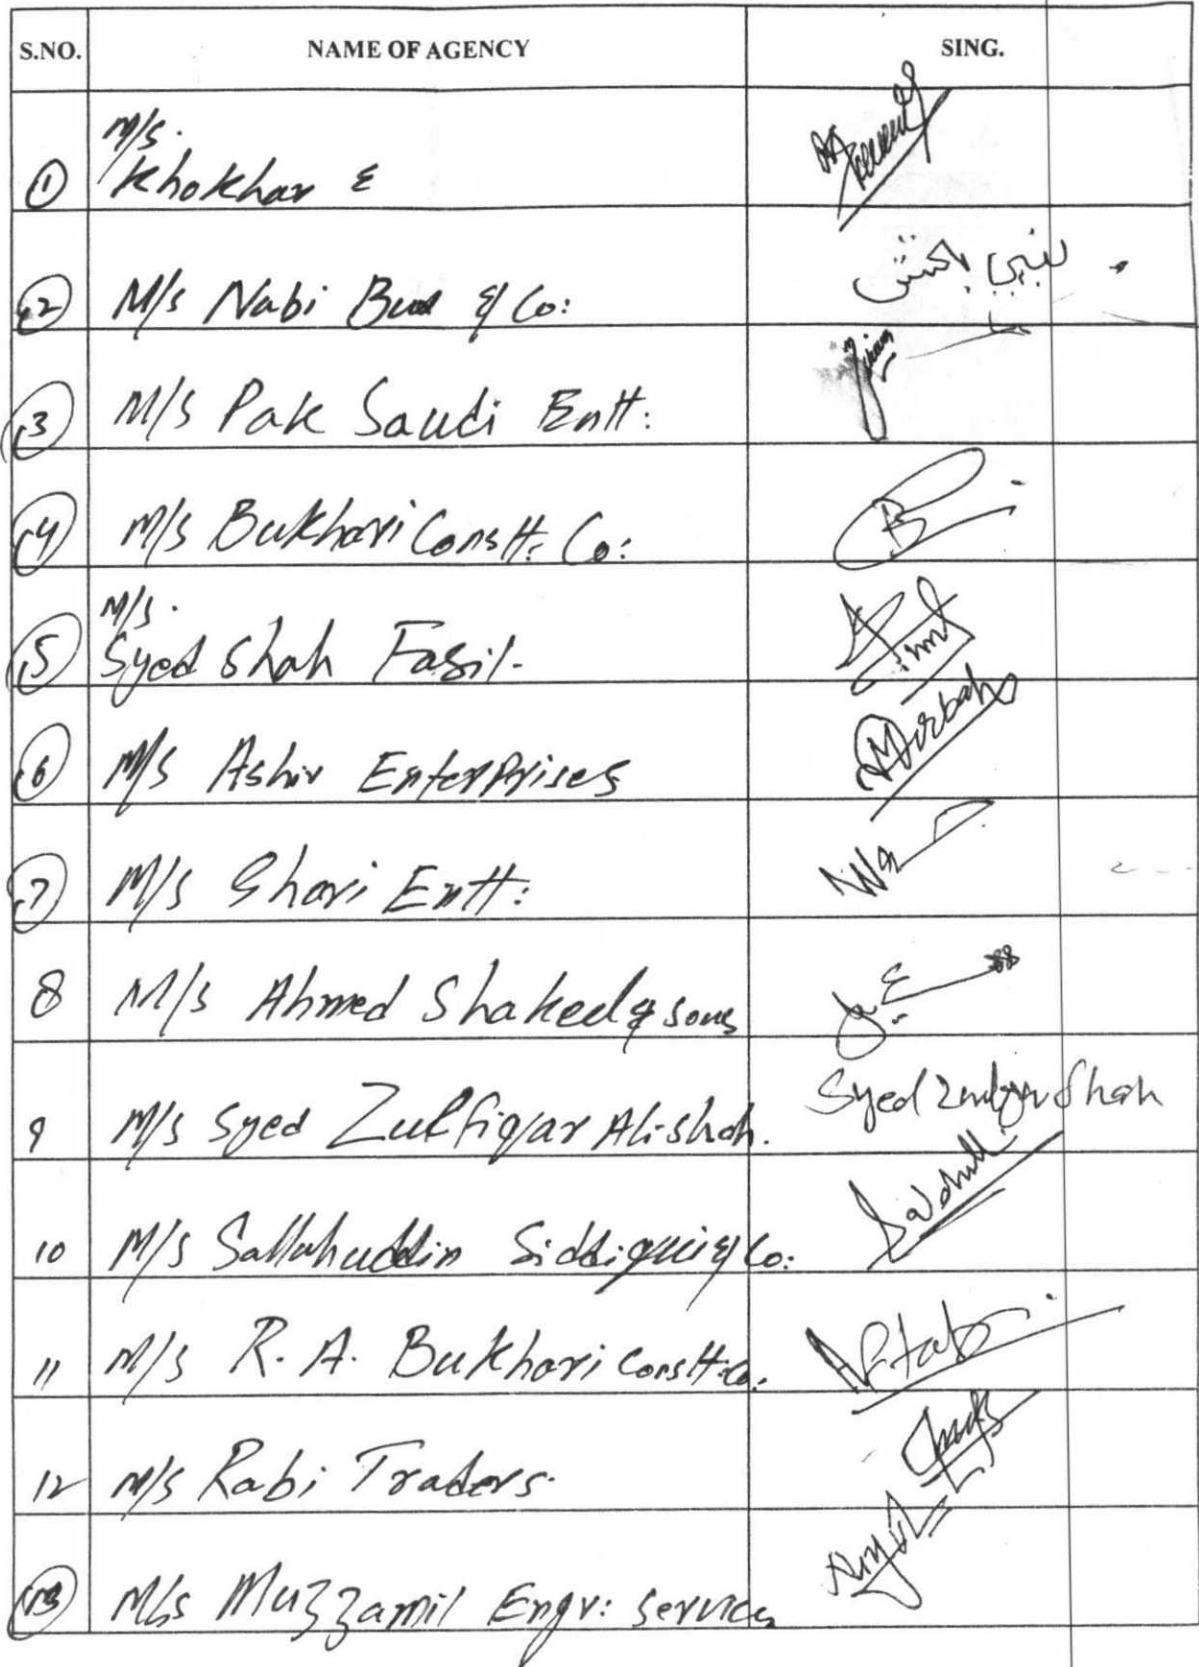 S.NO. NAME OF AGENCY SING.
M/s.
1 Khokhar &
2 M/s Nabi Bux & Co: نبي بخش
3 M/s Pak Saudi Entt:
4 M/s Bukhari Constt: Co: B
M/s.
5 Syed Shah Fasil.
6 M/s Ashir Enterprises
7 M/s Ghori Entt:
8 M/s Ahmed Shakeel & sons
9 M/s Syed Zulfiqar Ali Shah. Syed Zulfiqar Shah
10 M/s Sallahuddin Siddiqui & Co:
11 M/s R. A. Bukhari Constt: Co: Aftab
12 M/s Rabi Traders.
13 M/s Muzzamil Engr: Services